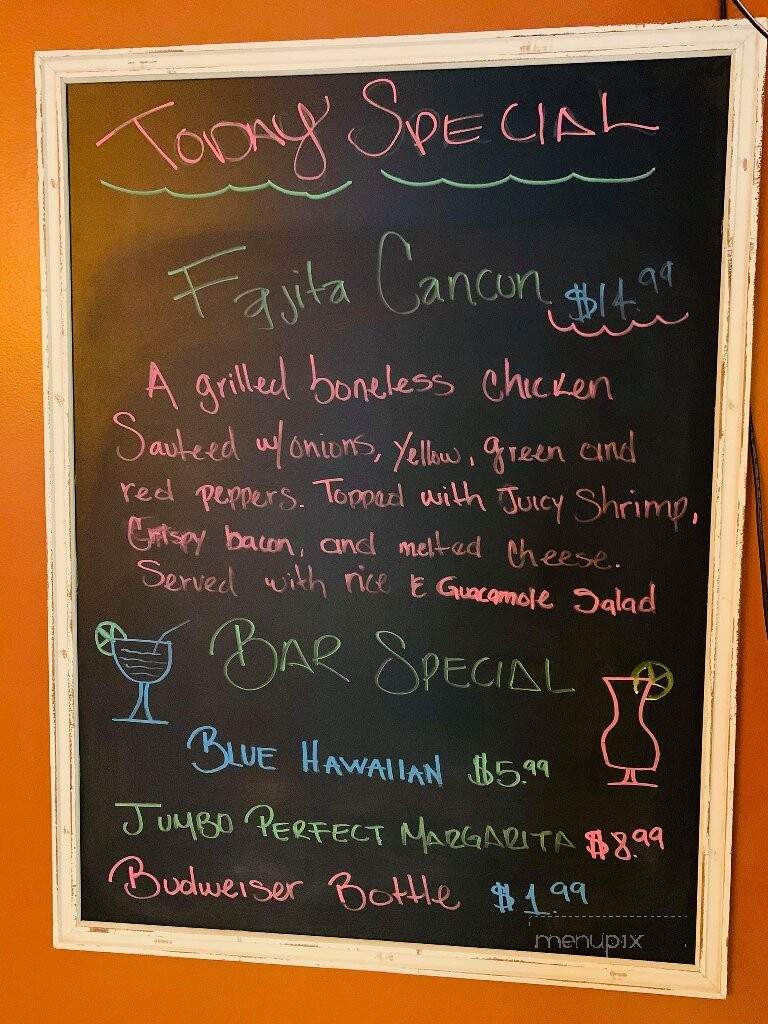 TODAY SPECIAL
Fajita Cancun $14.99
A grilled boneless chicken
Sauteed w/onions, yellow, green and
red peppers. Topped with Juicy Shrimp,
Crispy bacon, and melted cheese.
Served with rice & Guacamole Salad
BAR SPECIAL
BLUE HAWAIIAN $5.99
JUMBO PERFECT MARGARITA $8.99
Budweiser Bottle $1.99
menupix